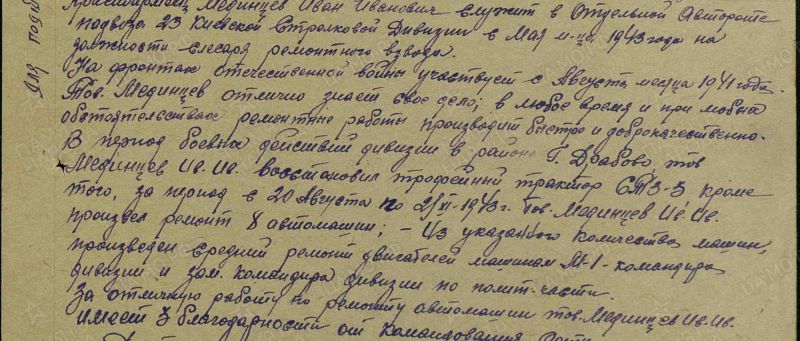 Красноармеец Мединцев Иван Иванович служит в Отдельной Автороте
подвоза 23 Киевской Стрелковой Дивизии с Мая м-ца 1943 года на
должности слесаря ремонтного взвода.
На фронтах отечественной войны участвует с Августа месяца 1941 года.
Тов. Мединцев отлично знает свое дело; в любое время и при любых
обстоятельствах ремонтные работы производит быстро и доброкачественно.
В период боевых действий дивизии в районе Г. Драбово тов
Мединцев Ив. Ив. восстановил трофейный трактор СТЗ-3 кроме
того, за период с 20 Августа по 2/XI-1943 г. тов. Мединцев Ив. Ив.
произвел ремонт 8 автомашин; - Из указанного количества машин,
произведен средний ремонт двигателей машинам М-1 - командира
дивизии и зам. командира дивизии по полит-части.
За отличную работу по ремонту автомашин тов. Мединцев Ив. Ив.
имеет 3 благодарности от Командования
Для